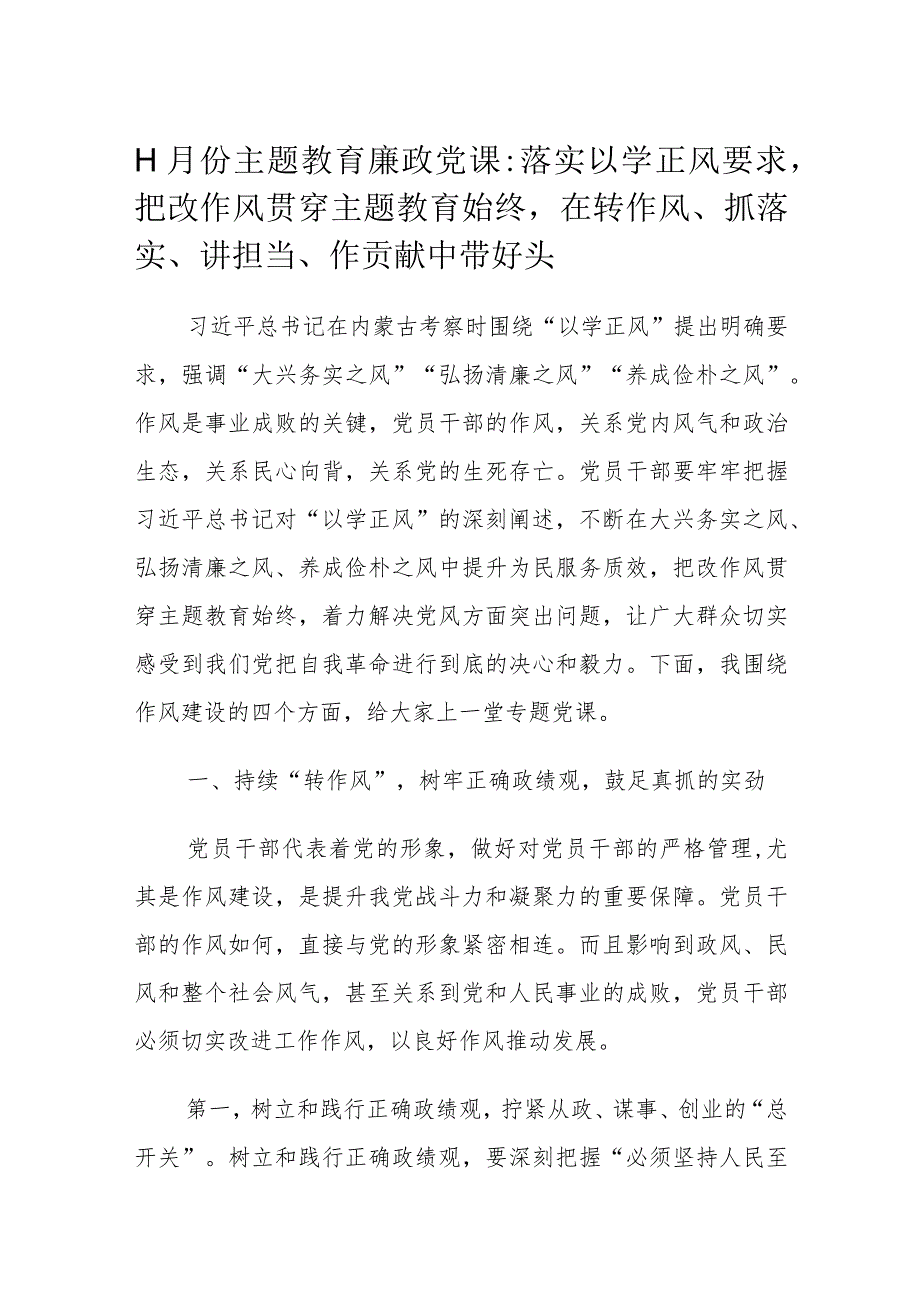 H 月份主题教育廉政党课:落实以学正风要求，
把改作风贯穿主题教育始终，在转作风、抓落
实、讲担当、作贡献中带好头
习近平总书记在内蒙古考察时围绕“以学正风”提出明确要
求，强调“大兴务实之风”“弘扬清廉之风”“养成俭朴之风”。
作风是事业成败的关键，党员干部的作风，关系党内风气和政治
生态，关系民心向背，关系党的生死存亡。党员干部要牢牢把握
习近平总书记对“以学正风”的深刻阐述，不断在大兴务实之风、
弘扬清廉之风、养成俭朴之风中提升为民服务质效，把改作风贯
穿主题教育始终，着力解决党风方面突出问题，让广大群众切实
感受到我们党把自我革命进行到底的决心和毅力。下面，我围绕
作风建设的四个方面，给大家上一堂专题党课。
一、持续“转作风”，树牢正确政绩观，鼓足真抓的实劲
党员干部代表着党的形象，做好对党员干部的严格管理,尤
其是作风建设，是提升我党战斗力和凝聚力的重要保障。党员干
部的作风如何，直接与党的形象紧密相连。而且影响到政风、民
风和整个社会风气，甚至关系到党和人民事业的成败，党员干部
必须切实改进工作作风，以良好作风推动发展。
第一，树立和践行正确政绩观，拧紧从政、谋事、创业的“总
开关”。树立和践行正确政绩观，要深刻把握“必须坚持人民至